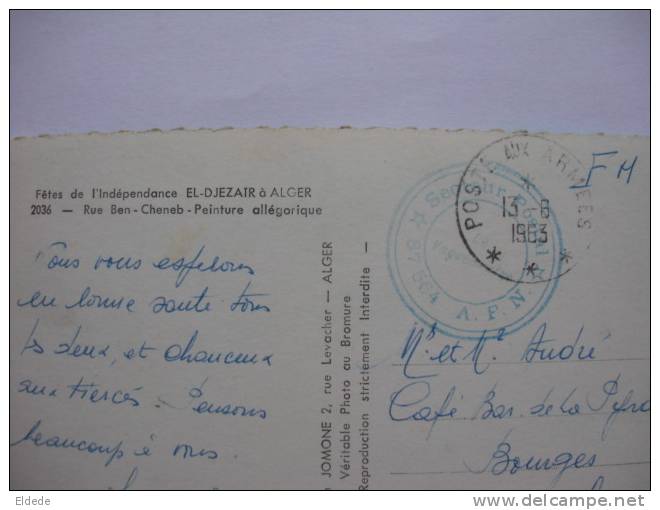 Fêtes de l'Indépendance EL-DJEZAIR à ALGER
2036 — Rue Ben-Cheneb-Peinture allégorique
Tous vous espérons
en bonne santé tous
les deux, et chanceux
aux tiercés. Pensons
beaucoup à vous.
JOMONE 2, rue Levacher — ALGER
Véritable Photo au Bromure
Reproduction strictement Interdite —
POSTE AUX ARMEES
13-6
1963
Secteur Postal
A.F.N.
F M
et André
Café Bar de la
Bourges
Eldede
delcampe.net